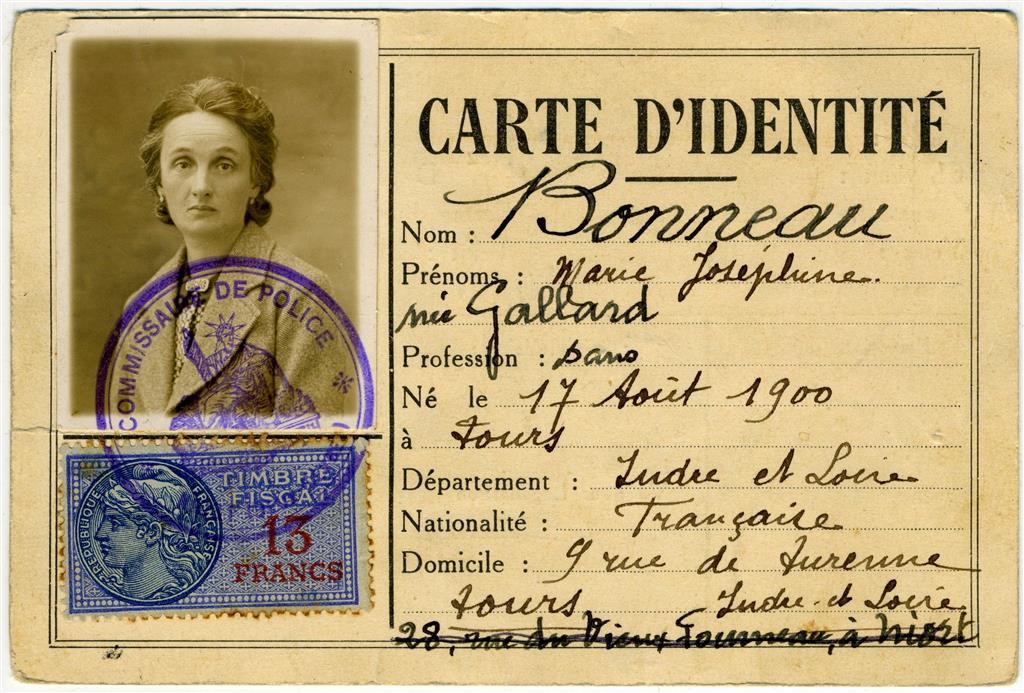 CARTE D'IDENTITÉ
Nom : Bonneau
Prénoms : Marie Joséphine.
née Gallard
Profession : sans
Né le 17 Août 1900
à Tours
Département : Indre et Loire
Nationalité : Française
Domicile : 9 rue de Turenne
Tours Indre-et Loire
28, rue du Vieux Fourneau, à Niort
COMMISSAIRE DE POLICE *
TIMBRE
FISCAL
13
FRANCS
RÉPUBLIQUE FRANÇAISE